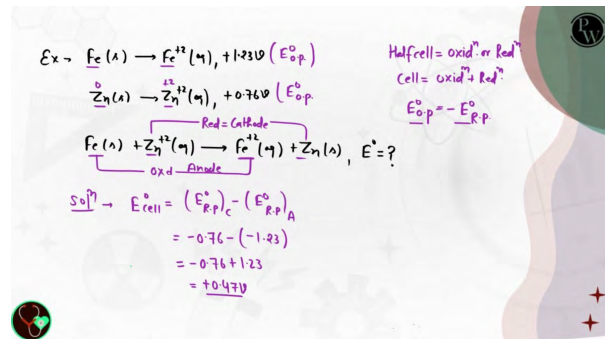 Ex → Fe(s) → Fe⁺²(aq), +1.23V (E°o.p.)
0 +2
Zn(s) → Zn⁺²(aq), +0.76V (E°o.p.
Red = Cathode
Fe(s) + Zn⁺²(aq) → Fe⁺²(aq) + Zn(s), E° = ?
oxd Anode
Solⁿ → E°cell = (E°R.P)C − (E°R.P)A
= -0.76 - (-1.23)
= -0.76 + 1.23
= +0.47V
PW
Halfcell = oxidⁿ. or Redⁿ
Cell = oxidⁿ + Redⁿ.
E°o.p = − E°R.P.